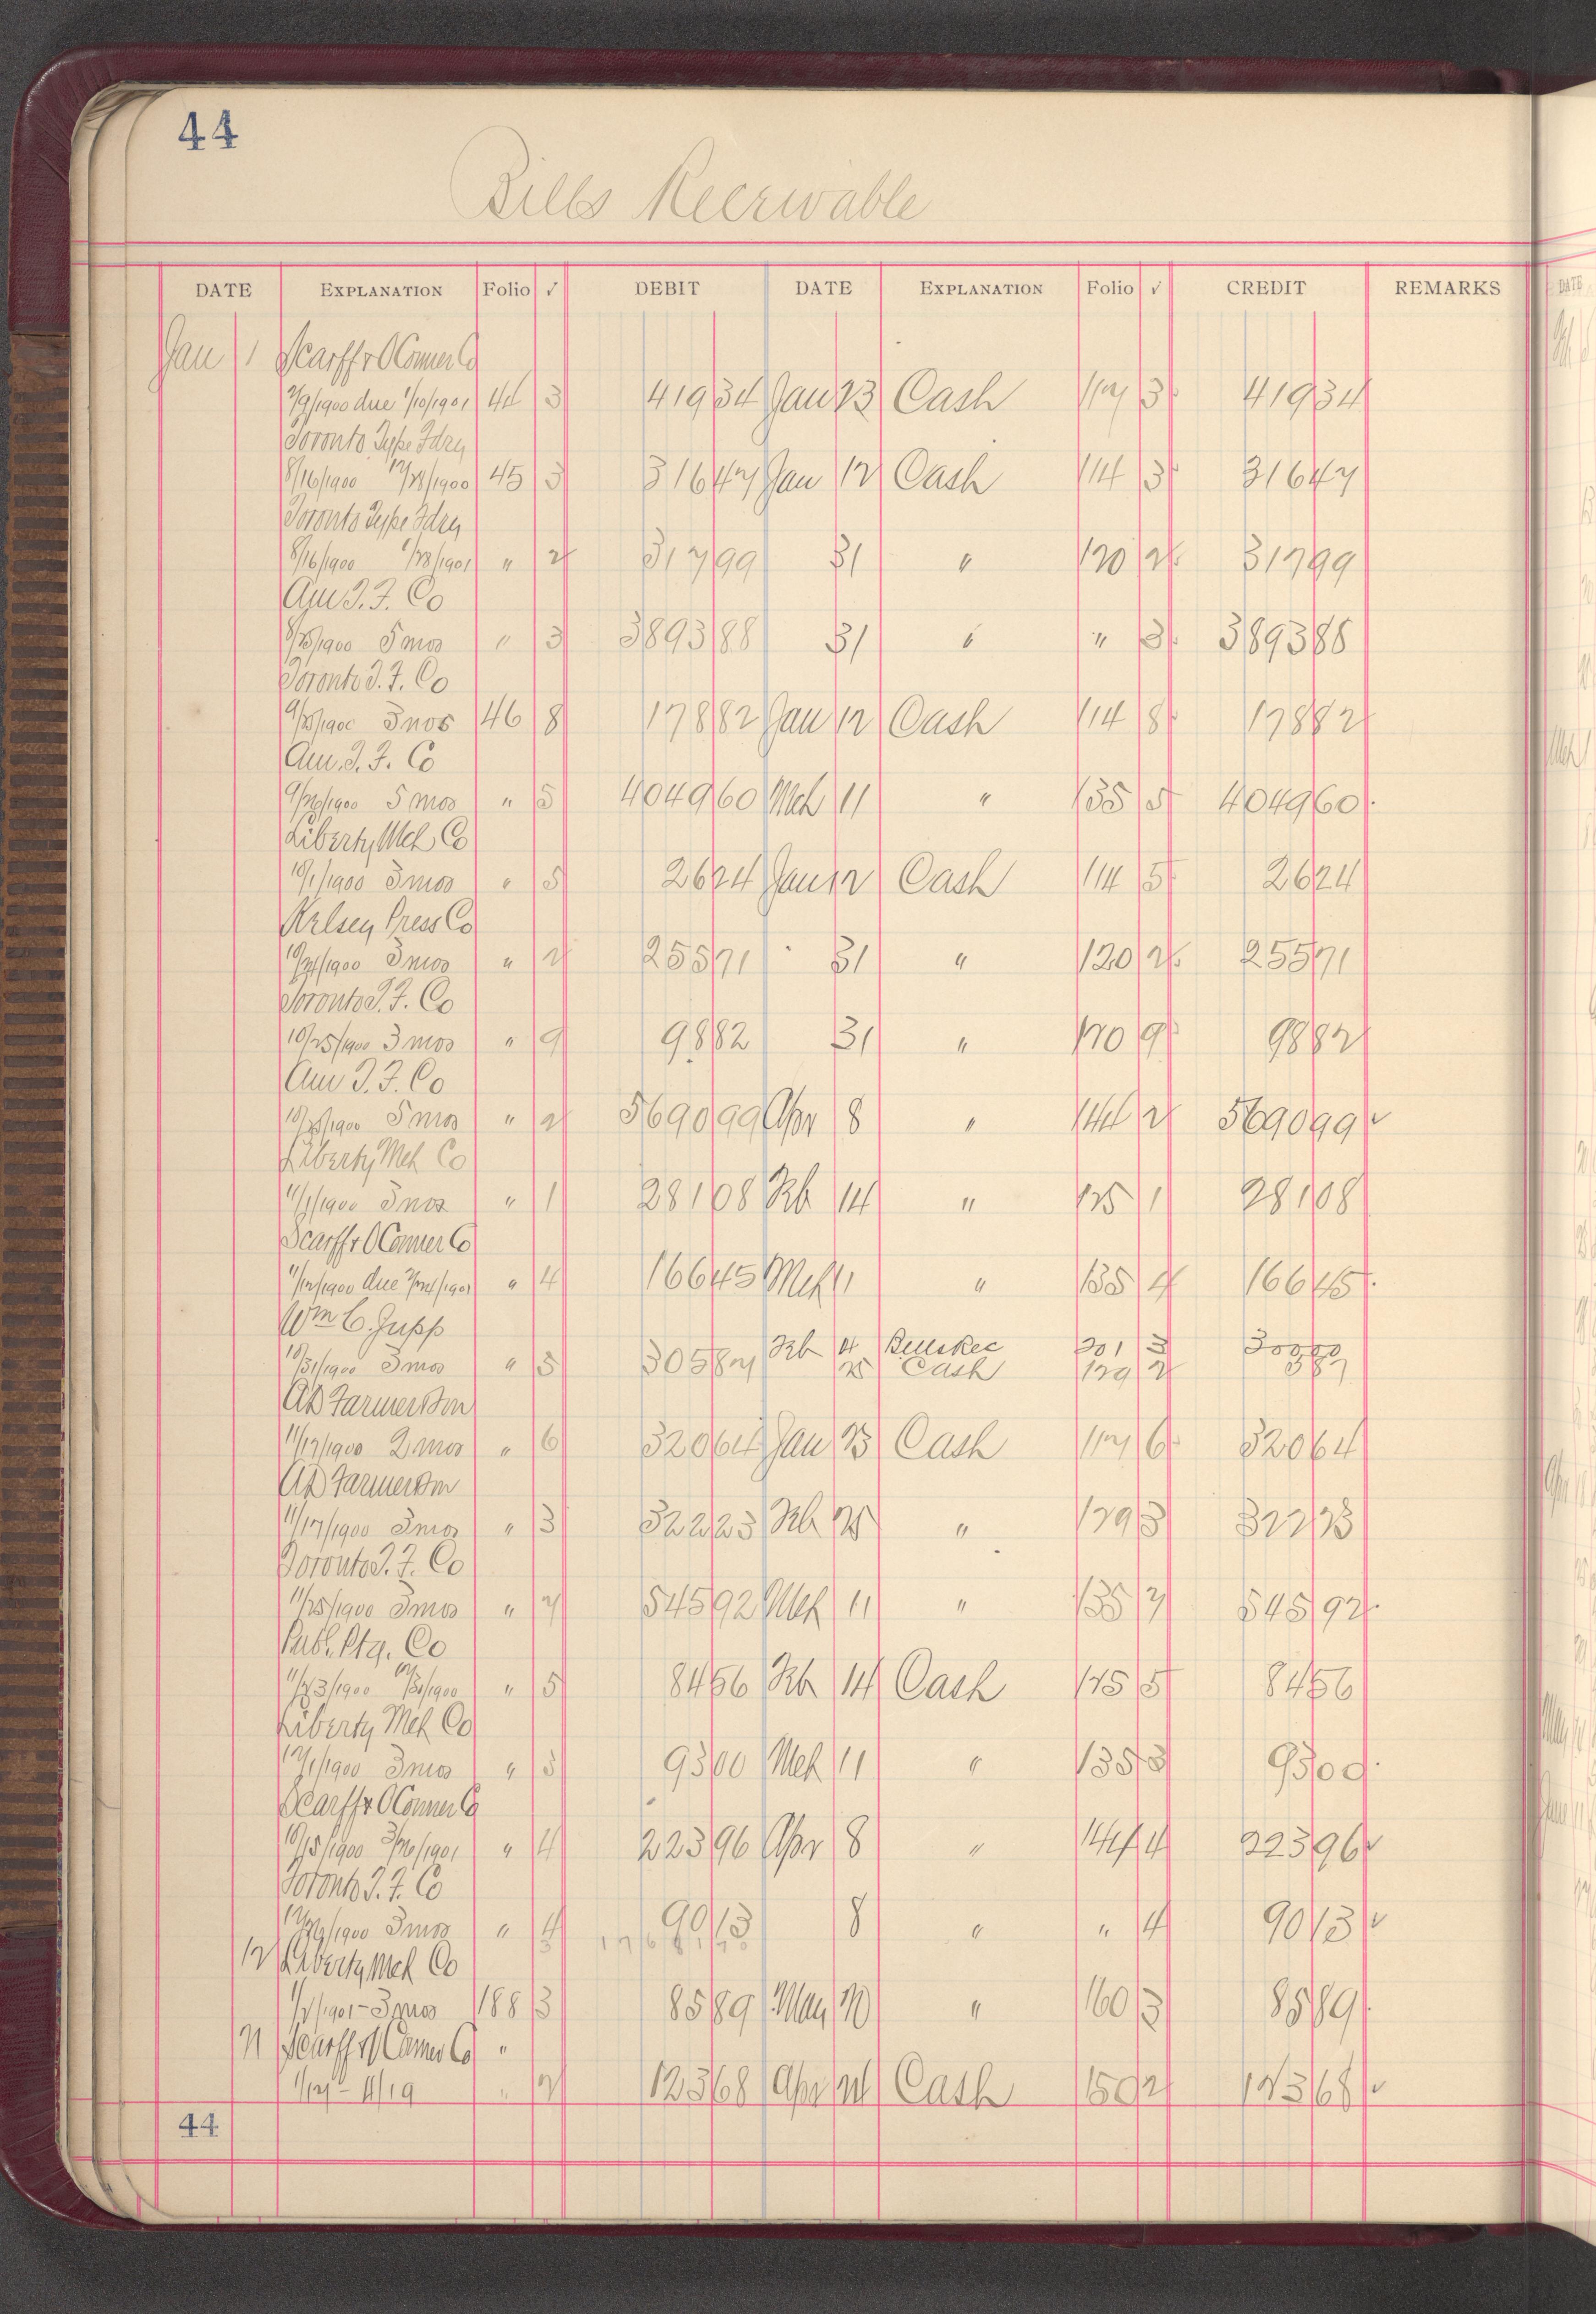 44
Bills Receivable
DATE EXPLANATION Folio √ DEBIT DATE EXPLANATION Folio √ CREDIT REMARKS
Jan 1 Scarff & O'Connor Co
due 1/10/1901 44 3 419 34 Jan 23 Cash 117 3 419 34
Toronto Type Fdry
8/16/1900 12/28/1900 45 3 316 47 Jan 12 Cash 114 3 316 47
Toronto Type Fdry
8/16/1900 1/28/1901 " 2 317 99 31 " 120 2 317 99
Am T. F. Co
8/25/1900 5 mos " 3 3893 88 31 " " 3 3893 88
Toronto T. F. Co
9/25/1900 3 mos 46 8 178 82 Jan 12 Cash 114 8 178 82
Am. T. F. Co
9/26/1900 5 mos " 5 4049 60 Mch 11 " 135 5 4049 60
Liberty Mch Co
10/1/1900 3 mos " 5 26 24 Jan 12 Cash 114 5 26 24
Kelsey Press Co
1900 3 mos " 2 255 71 31 " 120 2 255 71
Toronto T. F. Co
10/25/1900 3 mos " 9 98 82 31 " 120 9 98 82
Am T. F. Co
10/25/1900 5 mos " 2 5690 99 Apr 8 " 144 2 5690 99 ✓
Liberty Mch Co
11/1/1900 3 mos " 1 281 08 Feb 14 " 125 1 281 08
Scarff & O'Connor Co
11/12/1900 due " 4 166 45 Mch 11 " 135 4 166 45
Wm C. Jupp
10/31/1900 3 mos " 5 305 87 Feb 4 Bills Rec 301 3 300 00
25 Cash 129 2 5 87
AD Farmer & Son
11/17/1900 2 mos " 6 320 64 Jan 23 Cash 117 6 320 64
AD Farmer & Son
11/17/1900 3 mos " 3 322 23 Feb 25 " 129 3 322 23
Toronto T. F. Co
11/25/1900 3 mos " 7 545 92 Mch 11 " 135 7 545 92
Pub. Ptg. Co
11/23/1900 12/31/1900 " 5 84 56 Feb 14 Cash 125 5 84 56
Liberty Mch Co
12/1/1900 3 mos " 3 93 00 Mch 11 " 135 3 93 00
Scarff & O'Connor Co
10/15/1900 3/26/1901 " 4 223 96 Apr 8 " 144 4 223 96 ✓
Toronto T. F. Co
12/26/1900 3 mos " 4 90 13 8 " " 4 90 13 ✓
12 Liberty Mch Co
1/2/1901 - 3 mos 188 3 85 89 May 20 " 160 3 85 89
21 Scarff & O'Connor Co "
1/17 - 4/19 " 2 123 68 Apr 24 Cash 150 2 123 68 ✓
44